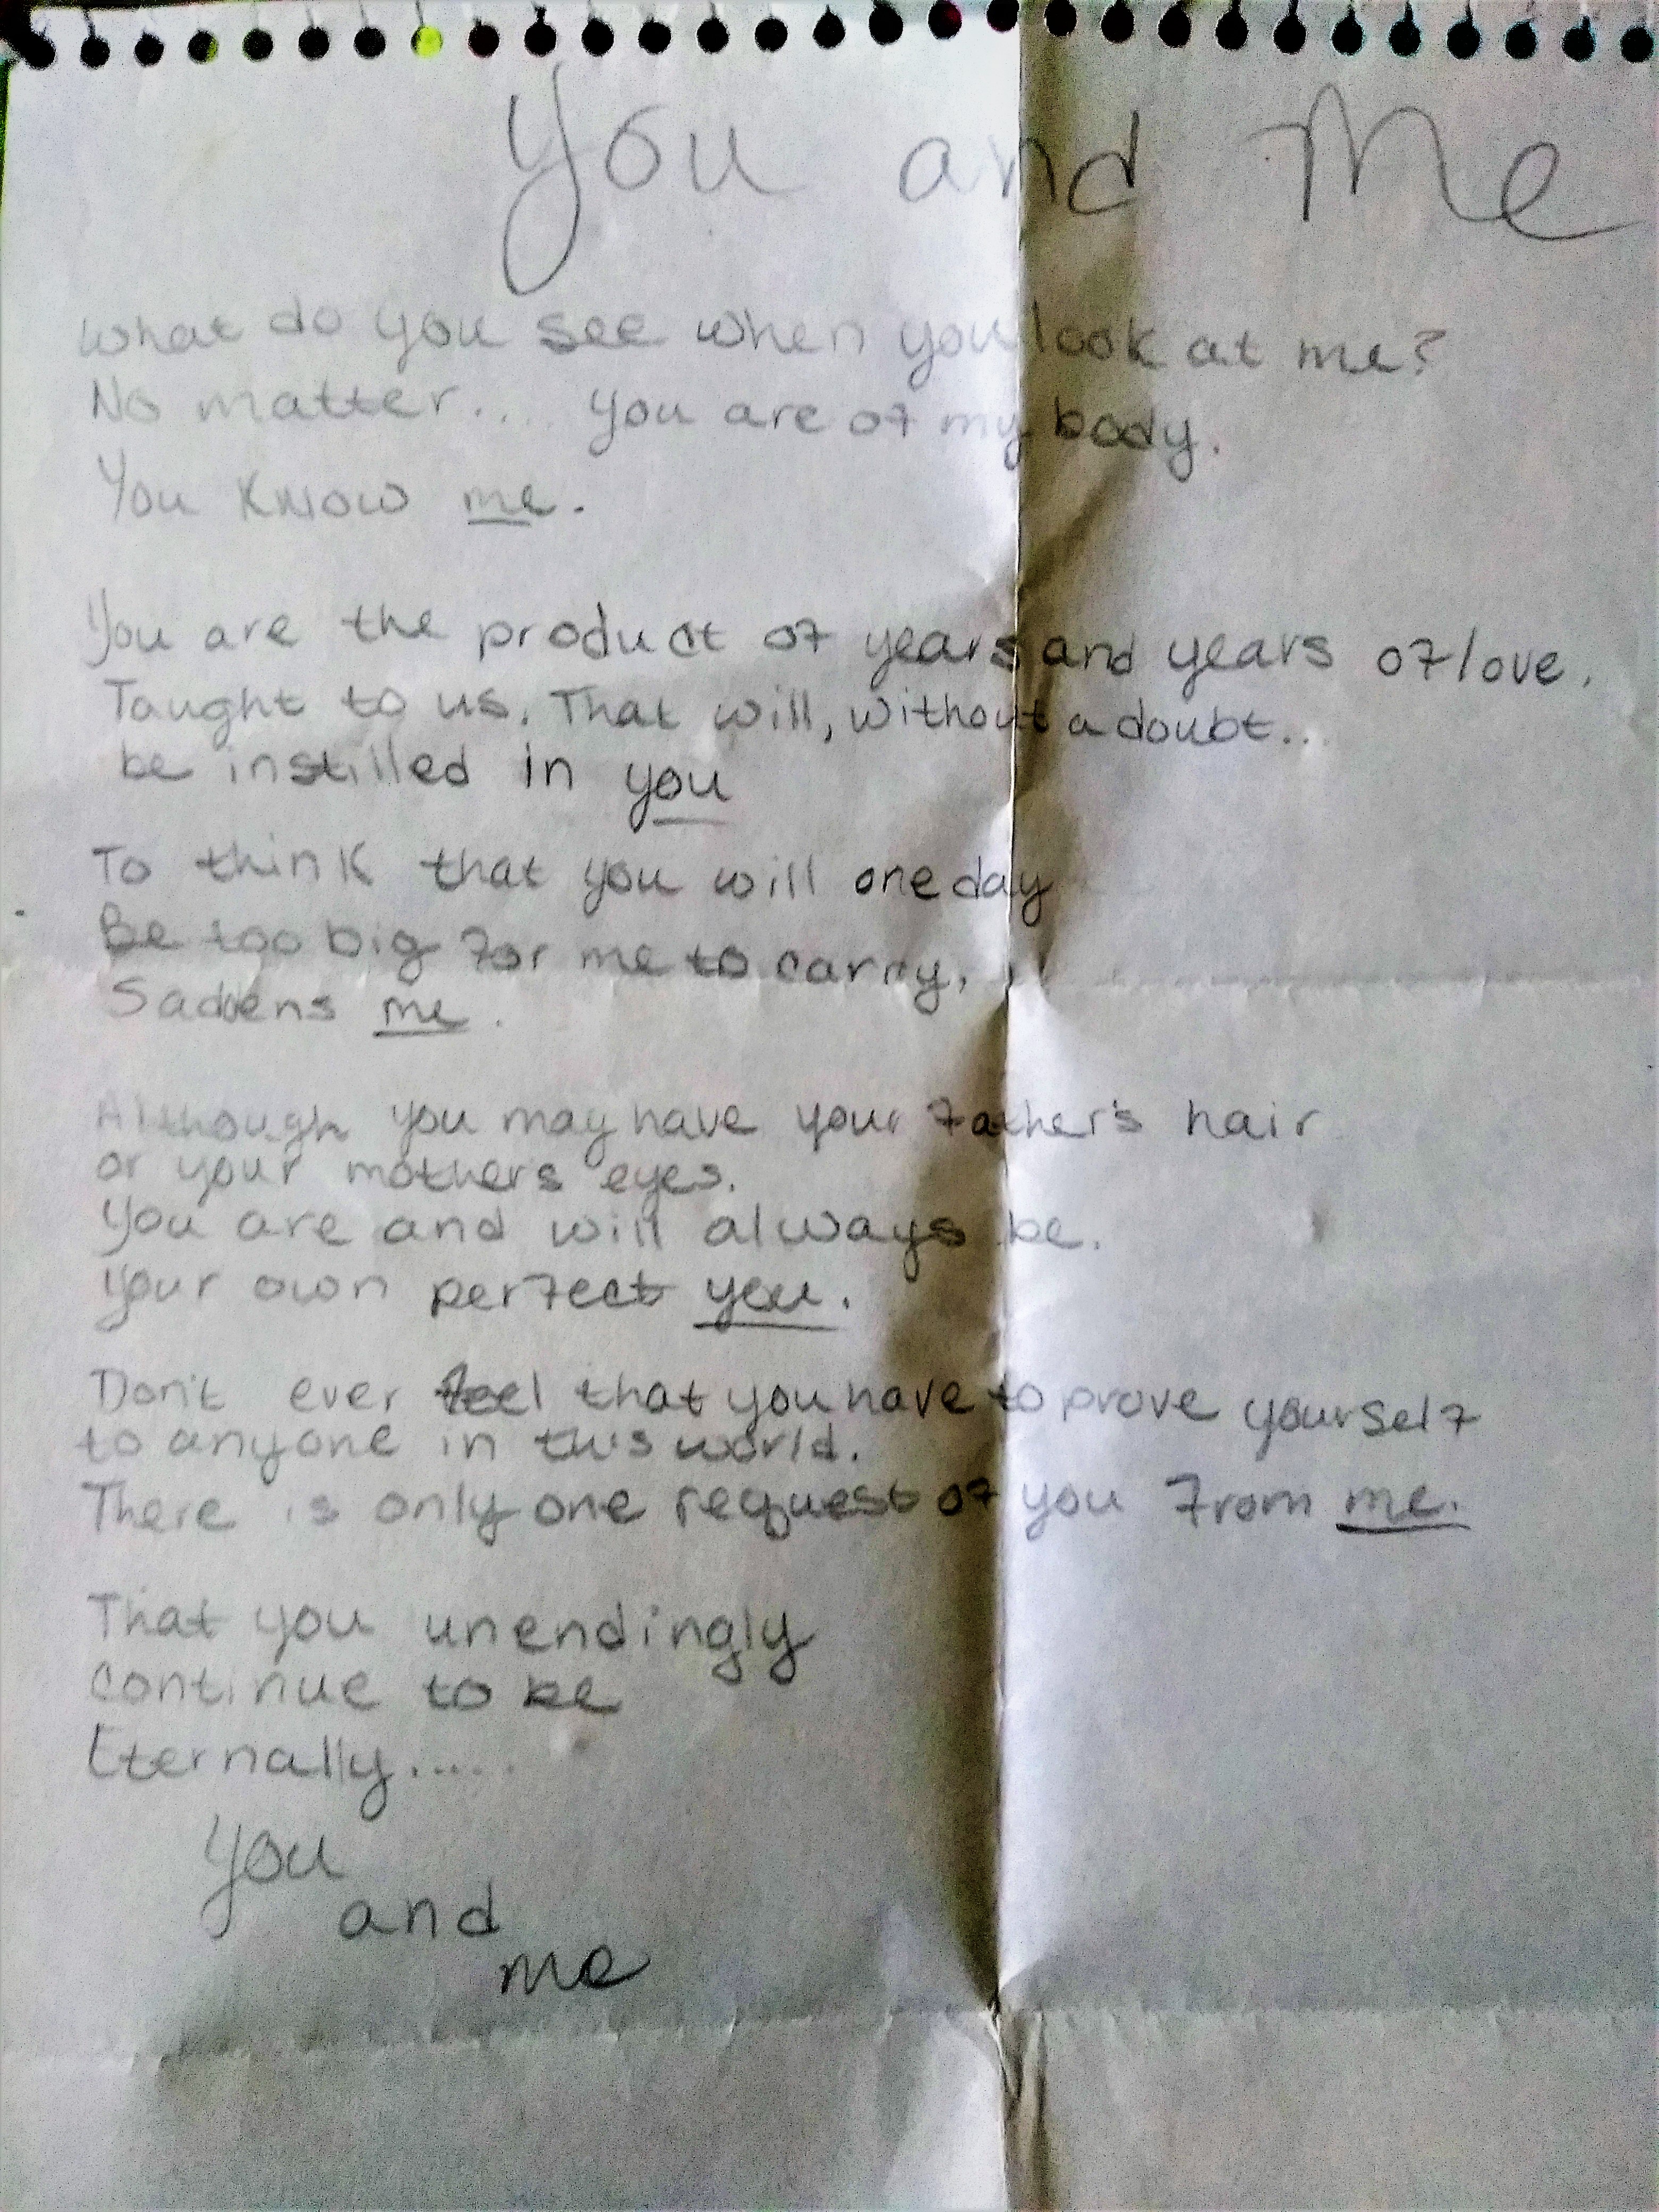 You and Me
What do you see when you look at me?
No matter.... you are of my body.
You know me.
You are the product of years and years of love.
Taught to us. That will, without a doubt...
be instilled in you
To think that you will one day
Be too big for me to carry,
Saddens me.
Although you may have your father's hair
or your mother's eyes.
You are and will always be.
Your own perfect you.
Don't ever feel that you have to prove yourself
to anyone in this world.
There is only one request of you from me.
That you unendingly
continue to be
Eternally.....
You
and
me